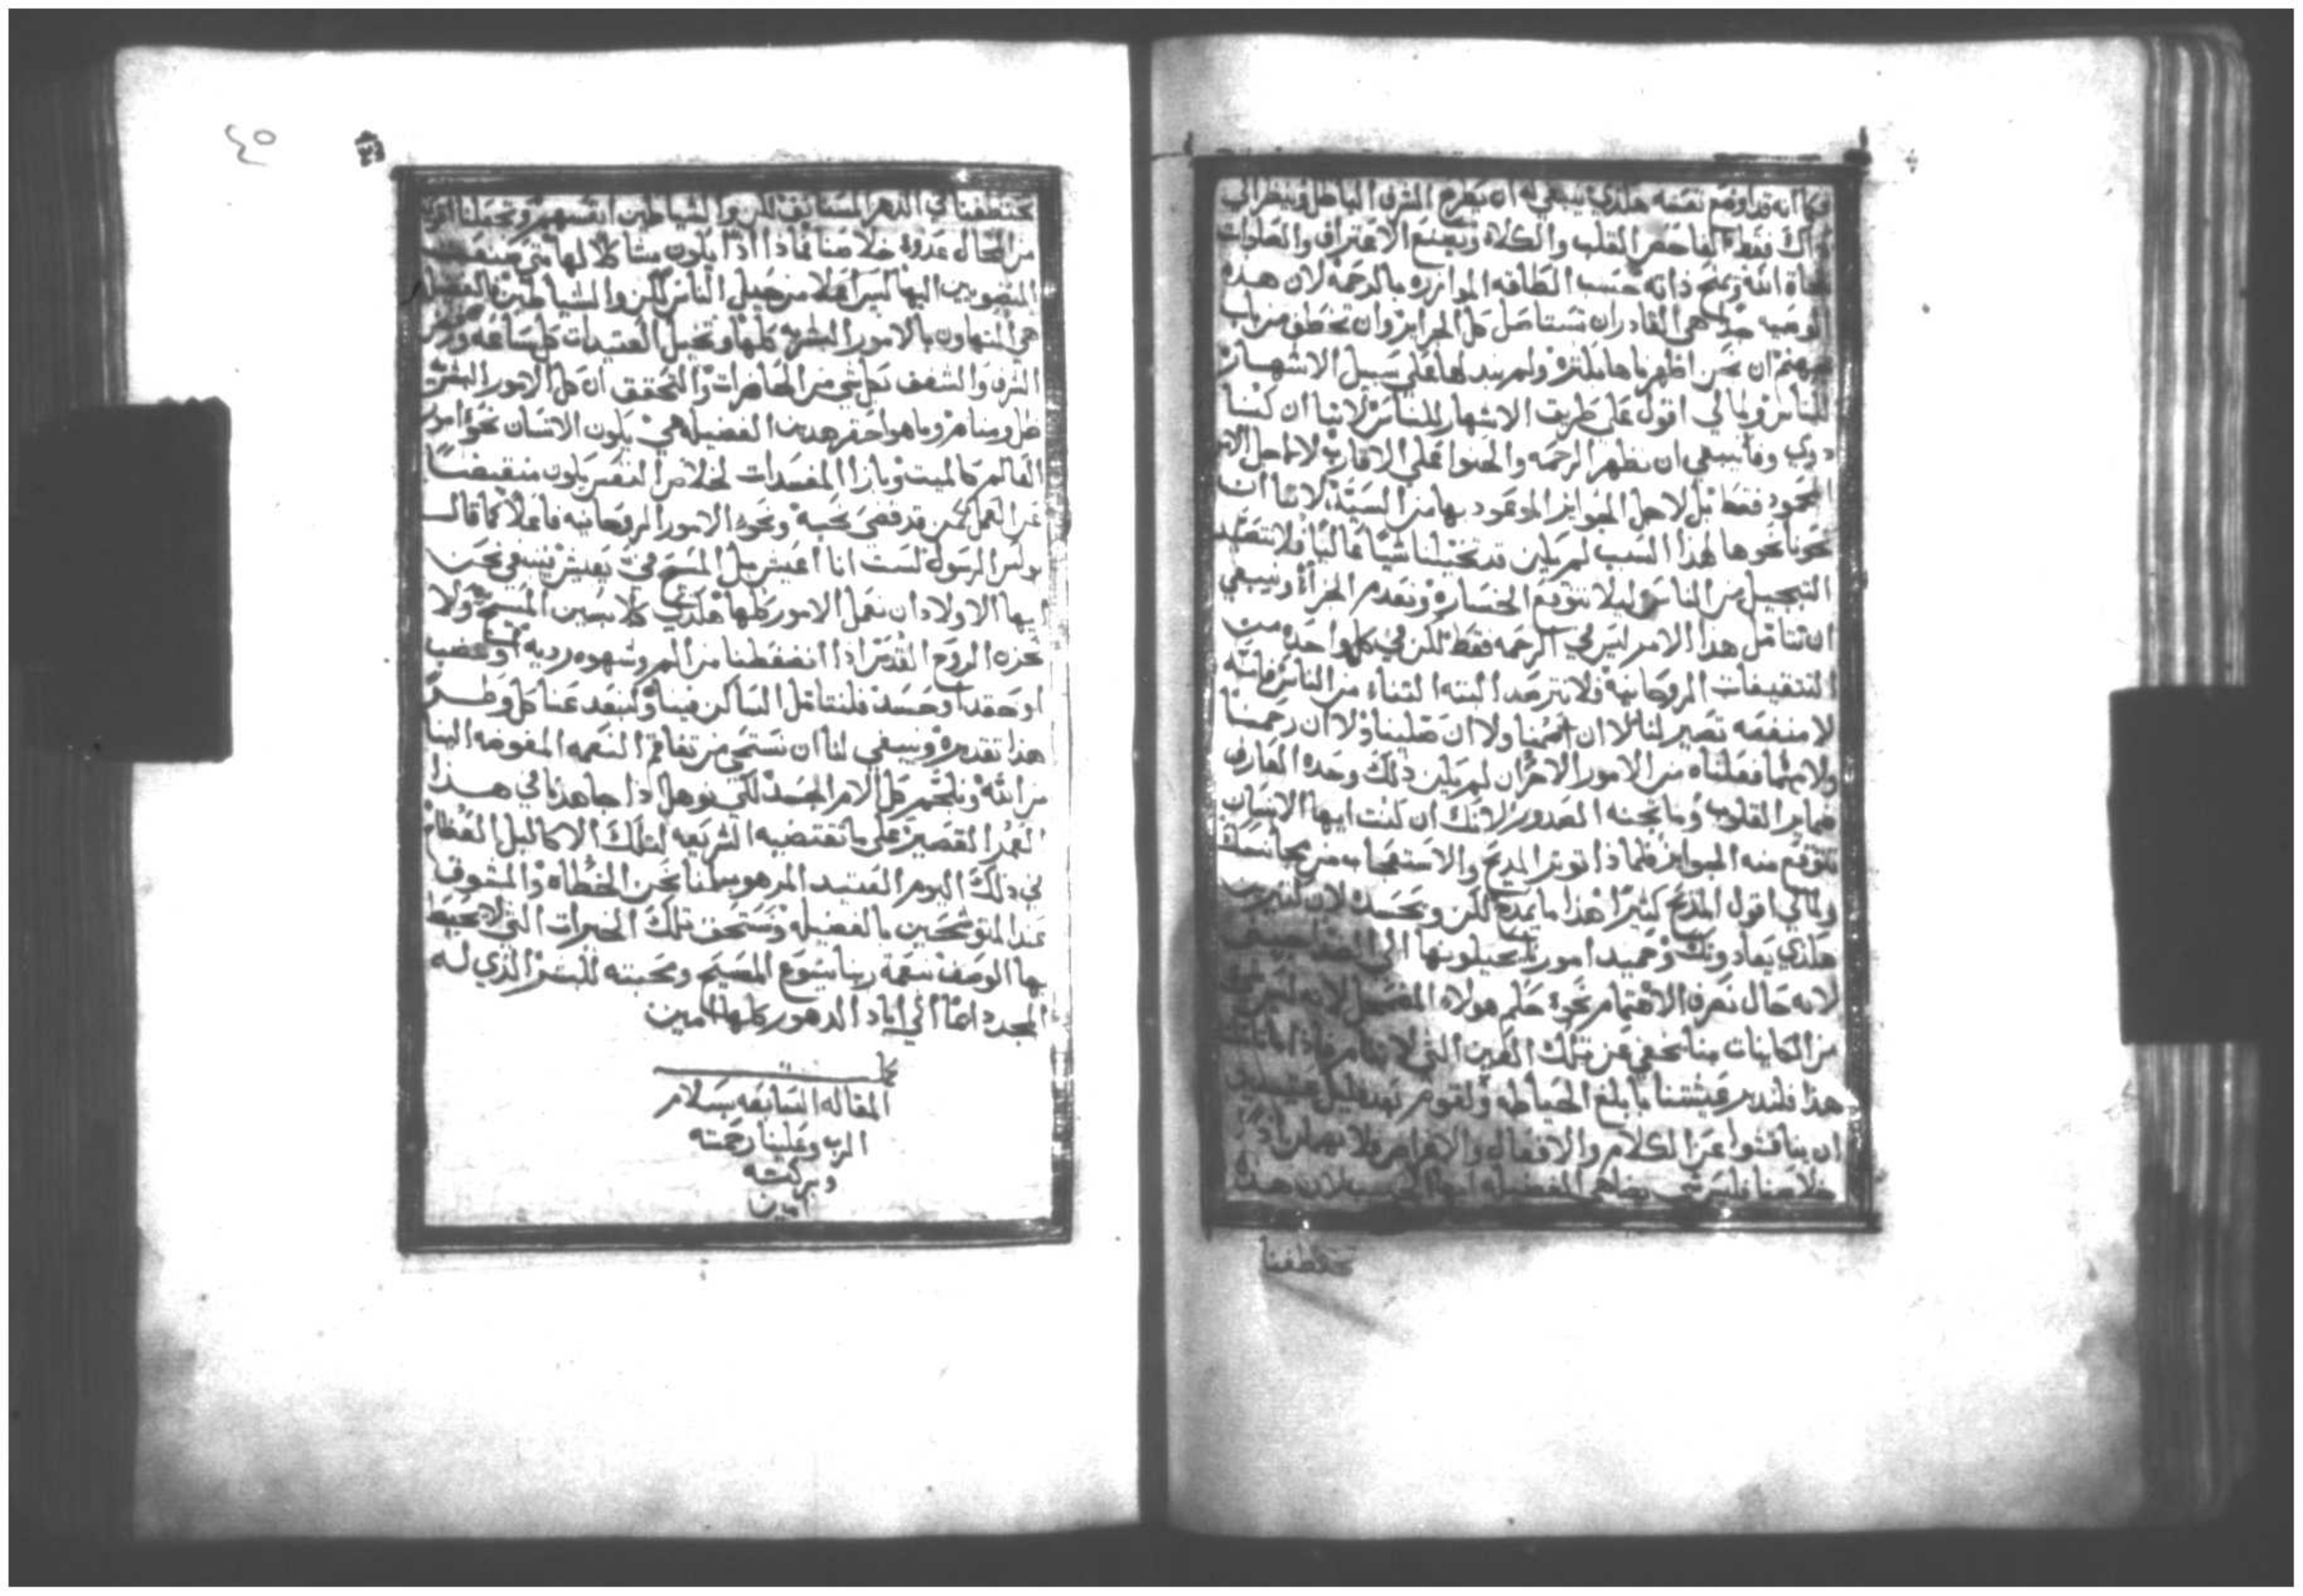 فكما انه قد اوضع نفسه هكذي ينبغي له ان يطرح الشرف الباطل وينظر الى
ذاك فقط الفاحص القلب والكلاه ويصنع الاعتراف والصلوات
تجاة الله ويمنح ذاته حسب الطاقه الموازره بالرحمه لان هذه
الوصيه جداً هي القادره ان تستاصل كل الجرايم وان تخطف من باب
جهنم ان نحن اظهرناها بلتزه ولم نبدلها على سبيل الاشهار
للناس ومالي اقول على طريق الاشهار للناس لاننا ان كنا
دوي وفا ينبغي ان نظهر الرحمه والحنوا على الاقارب لا لاجل الامر
المحمود فقط بل لاجل الجوايز الموعود بها من السيد لاننا ان
نحونا نحوها لهذا السبب لم يكن قد تخيلنا شيا عاليا فلا نتصيد
التبجيل من الناس ليلا نتوقع الخساره ونعدم الجزاء وينبغي
ان نتامل هذا الامر ليس في الرحمه فقط لكن في كل واحده من
التثقيفات الروحانيه فلا نترصد البته الثناء من الناس فانه
لا منفعه تصير لنا لا ان صمنا ولا ان صلينا ولا ان رحمنا
ولا مهما فعلناه من الامور الاخر ان لم يكن ذلك وحده العارف
ضماير القلوب وما تجنه الصدور لانك ان كنت ايها الانسان
تتوقع منه الجوايز فلماذا توثر المديح والاستعجاب من مجانسك
ومالي اقول المديح كثيرا هذا ما يمدح لكن ويحسد لان كثيرين
هكذي يعادونك وحميد امورك يحيلونها الى
لانه حال نصرف الاهتمام نحوة حكم هولاء لانه ليس شي
من الكاينات منا يخفي عن تلك العين التي لا تنام فاذا
هذا فلندبر عيشتنا بابلغ الحياطه ولنقوم بعد قليل عتيدين
ان يناقشوا عن الكلام والافعال والافكار فلا نهمل اذاً
خلاصنا فليس شي يضاهي الفضيله ايها الاحبه لان هذه
تختطفنا
تختطفنا في الدهر المستانف لكن والشياطين انفسهم وتجعلنا
من المحال عدوة خلاصنا فماذا اذاً يكون مشاكلا لها متى
المنضويين اليها ليس اعلا من حيل الناس لكن والشياطين فالفضيله
هي التهاون بالامور البشريه كلها وتخيل العتيدات كل ساعه
الشرف والشغف بكل شي من الحاضرات والتحقق ان كل الامور البشريه
ظل ومنام وما هو احقر هدين الفضيله هي يكون الانسان نحوة امور
العالم كالميت وبازا المفسدات لخلاص النفس يكون منقبضاً
عن العمل كمن قد قضى نحبه ونحوة الامور الروحانيه فاعلا كما قال
بولس الرسول لست انا اعيش بل المسيح في يعيش ينبغي نحن
ايها الاولاد ان نعمل الامور كلها هكذي كلابسين المسيح ولا
نحزن الروح القدس اذا انضغطنا من الم وشهوه رديه او غضب
او حقد او حسد فلنتامل الساكن فينا ولنبعد عنا كل وطر
هذا تقديره وينبغي لنا ان نستحي من تفاقم النعمه المفوضه الينا
من الله ونلجم كل الام الجسد لكي نوهل اذا جاهدنا في هذا
العمر القصير على ما تقتضيه الشريعه لتلك الاكاليل العظام
في ذلك اليوم العتيد المرهوب لنا نحن الخطاه والمشوف
عند المتوشحين بالفضيله ونستحق تلك الخيرات التي لا يحيط
بها الوصف بنعمة ربنا يسوع المسيح ومحبته للبشر الذي له
المجد دايماً الى اباد الدهور كلها امين
كمل
المقاله السابعه بسلام
الرب وعلينا رحمته
وبركته
امين
٤٥